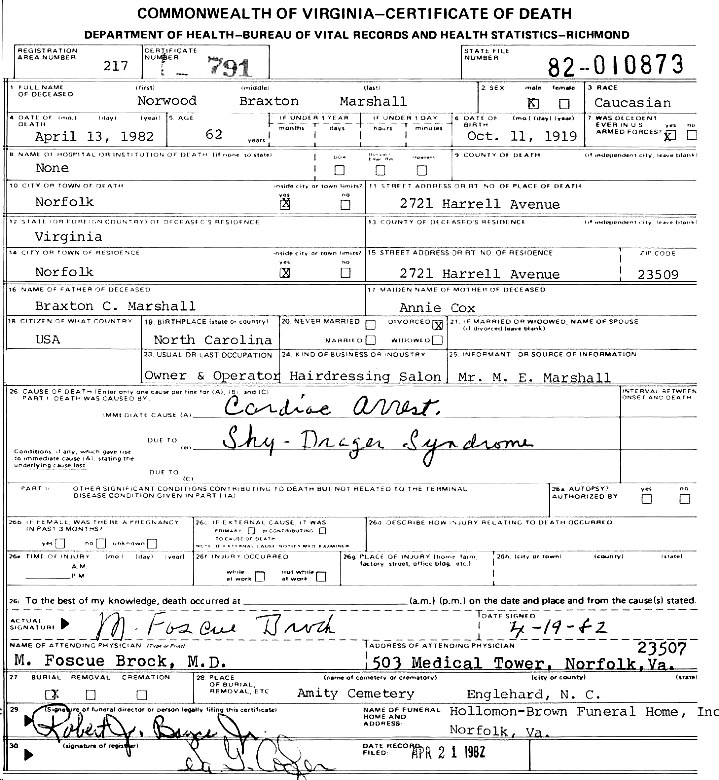 COMMONWEALTH OF VIRGINIA—CERTIFICATE OF DEATH
DEPARTMENT OF HEALTH—BUREAU OF VITAL RECORDS AND HEALTH STATISTICS—RICHMOND
REGISTRATION AREA NUMBER 217 CERTIFICATE NUMBER 791 STATE FILE NUMBER 82-010873
1 FULL NAME OF DECEASED (first) (middle) (last) 2 SEX male female 3 RACE
Norwood Braxton Marshall X Caucasian
4 DATE OF DEATH (mo.) (day) (year) 5 AGE IF UNDER 1 YEAR IF UNDER 1 DAY 6 DATE OF BIRTH (mo.) (day) (year) 7 WAS DECEDENT EVER IN U S ARMED FORCES? yes no
April 13, 1982 62 years months days hours minutes Oct. 11, 1919 X
8 NAME OF HOSPITAL OR INSTITUTION OF DEATH (if none, so state) DOA Inpatient 9 COUNTY OF DEATH (if independent city, leave blank)
None
10 CITY OR TOWN OF DEATH inside city or town limits? yes no 11 STREET ADDRESS OR RT. NO. OF PLACE OF DEATH
Norfolk X 2721 Harrell Avenue
12 STATE (OR FOREIGN COUNTRY) OF DECEASED'S RESIDENCE 13 COUNTY OF DECEASED'S RESIDENCE (if independent city, leave blank)
Virginia
14 CITY OR TOWN OF RESIDENCE inside city or town limits? yes no 15 STREET ADDRESS OR RT. NO. OF RESIDENCE ZIP CODE
Norfolk X 2721 Harrell Avenue 23509
16 NAME OF FATHER OF DECEASED 17 MAIDEN NAME OF MOTHER OF DECEASED
Braxton C. Marshall Annie Cox
18 CITIZEN OF WHAT COUNTRY 19 BIRTHPLACE (state or country) 20 NEVER MARRIED DIVORCED X 21 IF MARRIED OR WIDOWED, NAME OF SPOUSE (if divorced leave blank)
USA North Carolina MARRIED WIDOWED
23 USUAL OR LAST OCCUPATION 24 KIND OF BUSINESS OR INDUSTRY 25 INFORMANT OR SOURCE OF INFORMATION
Owner & Operator Hairdressing Salon Mr. M. E. Marshall
26 CAUSE OF DEATH (Enter only one cause per line for (A), (B), and (C) INTERVAL BETWEEN ONSET AND DEATH
PART I DEATH WAS CAUSED BY
IMMEDIATE CAUSE (A) Cardiac Arrest.
DUE TO (B) Shy-Drager Syndrome
Conditions, if any, which gave rise to immediate cause (A), stating the underlying cause last
DUE TO (C)
PART II OTHER SIGNIFICANT CONDITIONS CONTRIBUTING TO DEATH BUT NOT RELATED TO THE TERMINAL DISEASE CONDITION GIVEN IN PART I (A) 26a AUTOPSY? AUTHORIZED BY yes no
26b IF FEMALE, WAS THERE A PREGNANCY IN PAST 3 MONTHS? yes no unknown 26c IF EXTERNAL CAUSE, IT WAS PRIMARY or CONTRIBUTING TO CAUSE OF DEATH 26d DESCRIBE HOW INJURY RELATING TO DEATH OCCURRED
NOTE IF EXTERNAL CAUSE NOTIFY MED EXAMINER
26e TIME OF INJURY (mo.) (day) (year) A.M. P.M. 26f INJURY OCCURRED while at work not while at work 26g PLACE OF INJURY (home, farm, factory, street, office bldg, etc.) 26h. (city or town) (county) (state)
26i To the best of my knowledge, death occurred at (a.m.) (p.m.) on the date and place and from the cause(s) stated.
ACTUAL SIGNATURE M. Foscue Brock DATE SIGNED 4-19-82
NAME OF ATTENDING PHYSICIAN (Type or Print) ADDRESS OF ATTENDING PHYSICIAN 23507
M. Foscue Brock, M.D. 503 Medical Tower, Norfolk, Va.
27 BURIAL REMOVAL CREMATION 28 PLACE OF BURIAL, REMOVAL, ETC (name of cemetery or crematory) (city or county) (state)
X Amity Cemetery Englehard, N. C.
29 (Signature of funeral director or person legally filing this certificate) NAME OF FUNERAL HOME AND ADDRESS: Hollomon-Brown Funeral Home, Inc
Robert J. Jr. Norfolk, Va.
30 (signature of registrar) DATE RECORD FILED: APR 21 1982